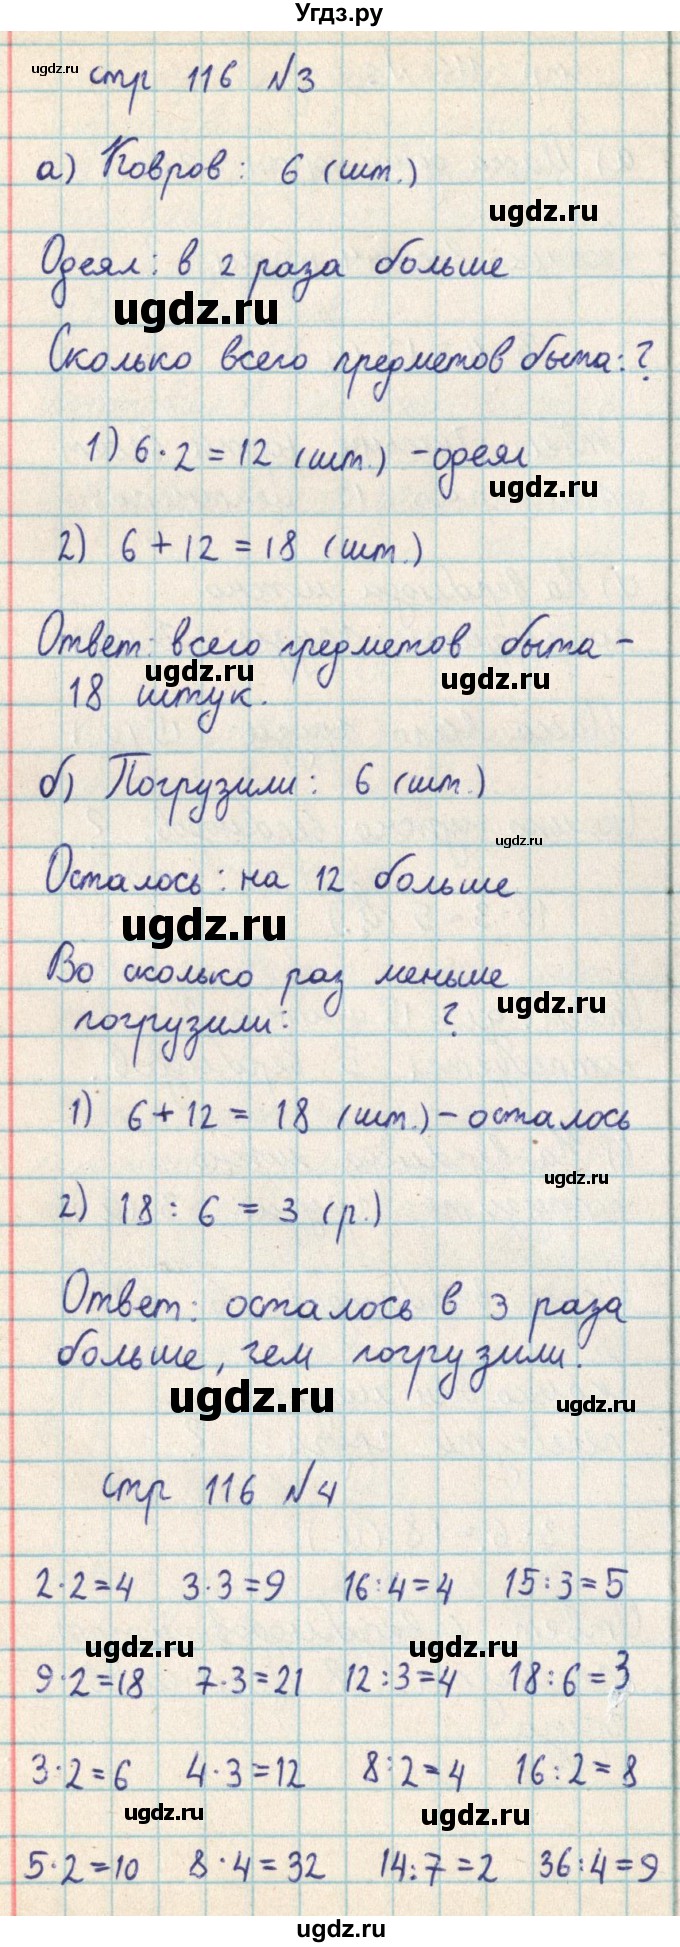 Угдз.ру
ugdz.ru стр 116 №3
а) Ковров: 6 (шт.)
ugdz.ru
Одеял: в 2 раза больше
ugdz.ru
Сколько всего предметов быта: ?
1) 6·2=12 (шт.) - одеял
ugdz.ru
2) 6+12=18 (шт.)
Ответ: всего предметов быта -
ugdz.ru ugdz.ru
18 штук.
б) Погрузили: 6 (шт.)
ugdz.ru
Осталось: на 12 больше
ugdz.ru
Во сколько раз меньше
ugdz.ru
погрузили: ?
1) 6+12=18 (шт.) - осталось
ugdz.ru
2) 18:6=3 (р.)
Ответ: осталось в 3 раза
больше, чем погрузили.
ugdz.ru ugdz.ru
стр 116 №4
2·2=4 3·3=9 16:4=4 15:3=5
ugdz.ru ugdz.ru
9·2=18 7·3=21 12:3=4 18:6=3
3·2=6 4·3=12 8:2=4 16:2=8
ugdz.ru ugdz.ru
5·2=10 8·4=32 14:7=2 36:4=9
ugdz.ru